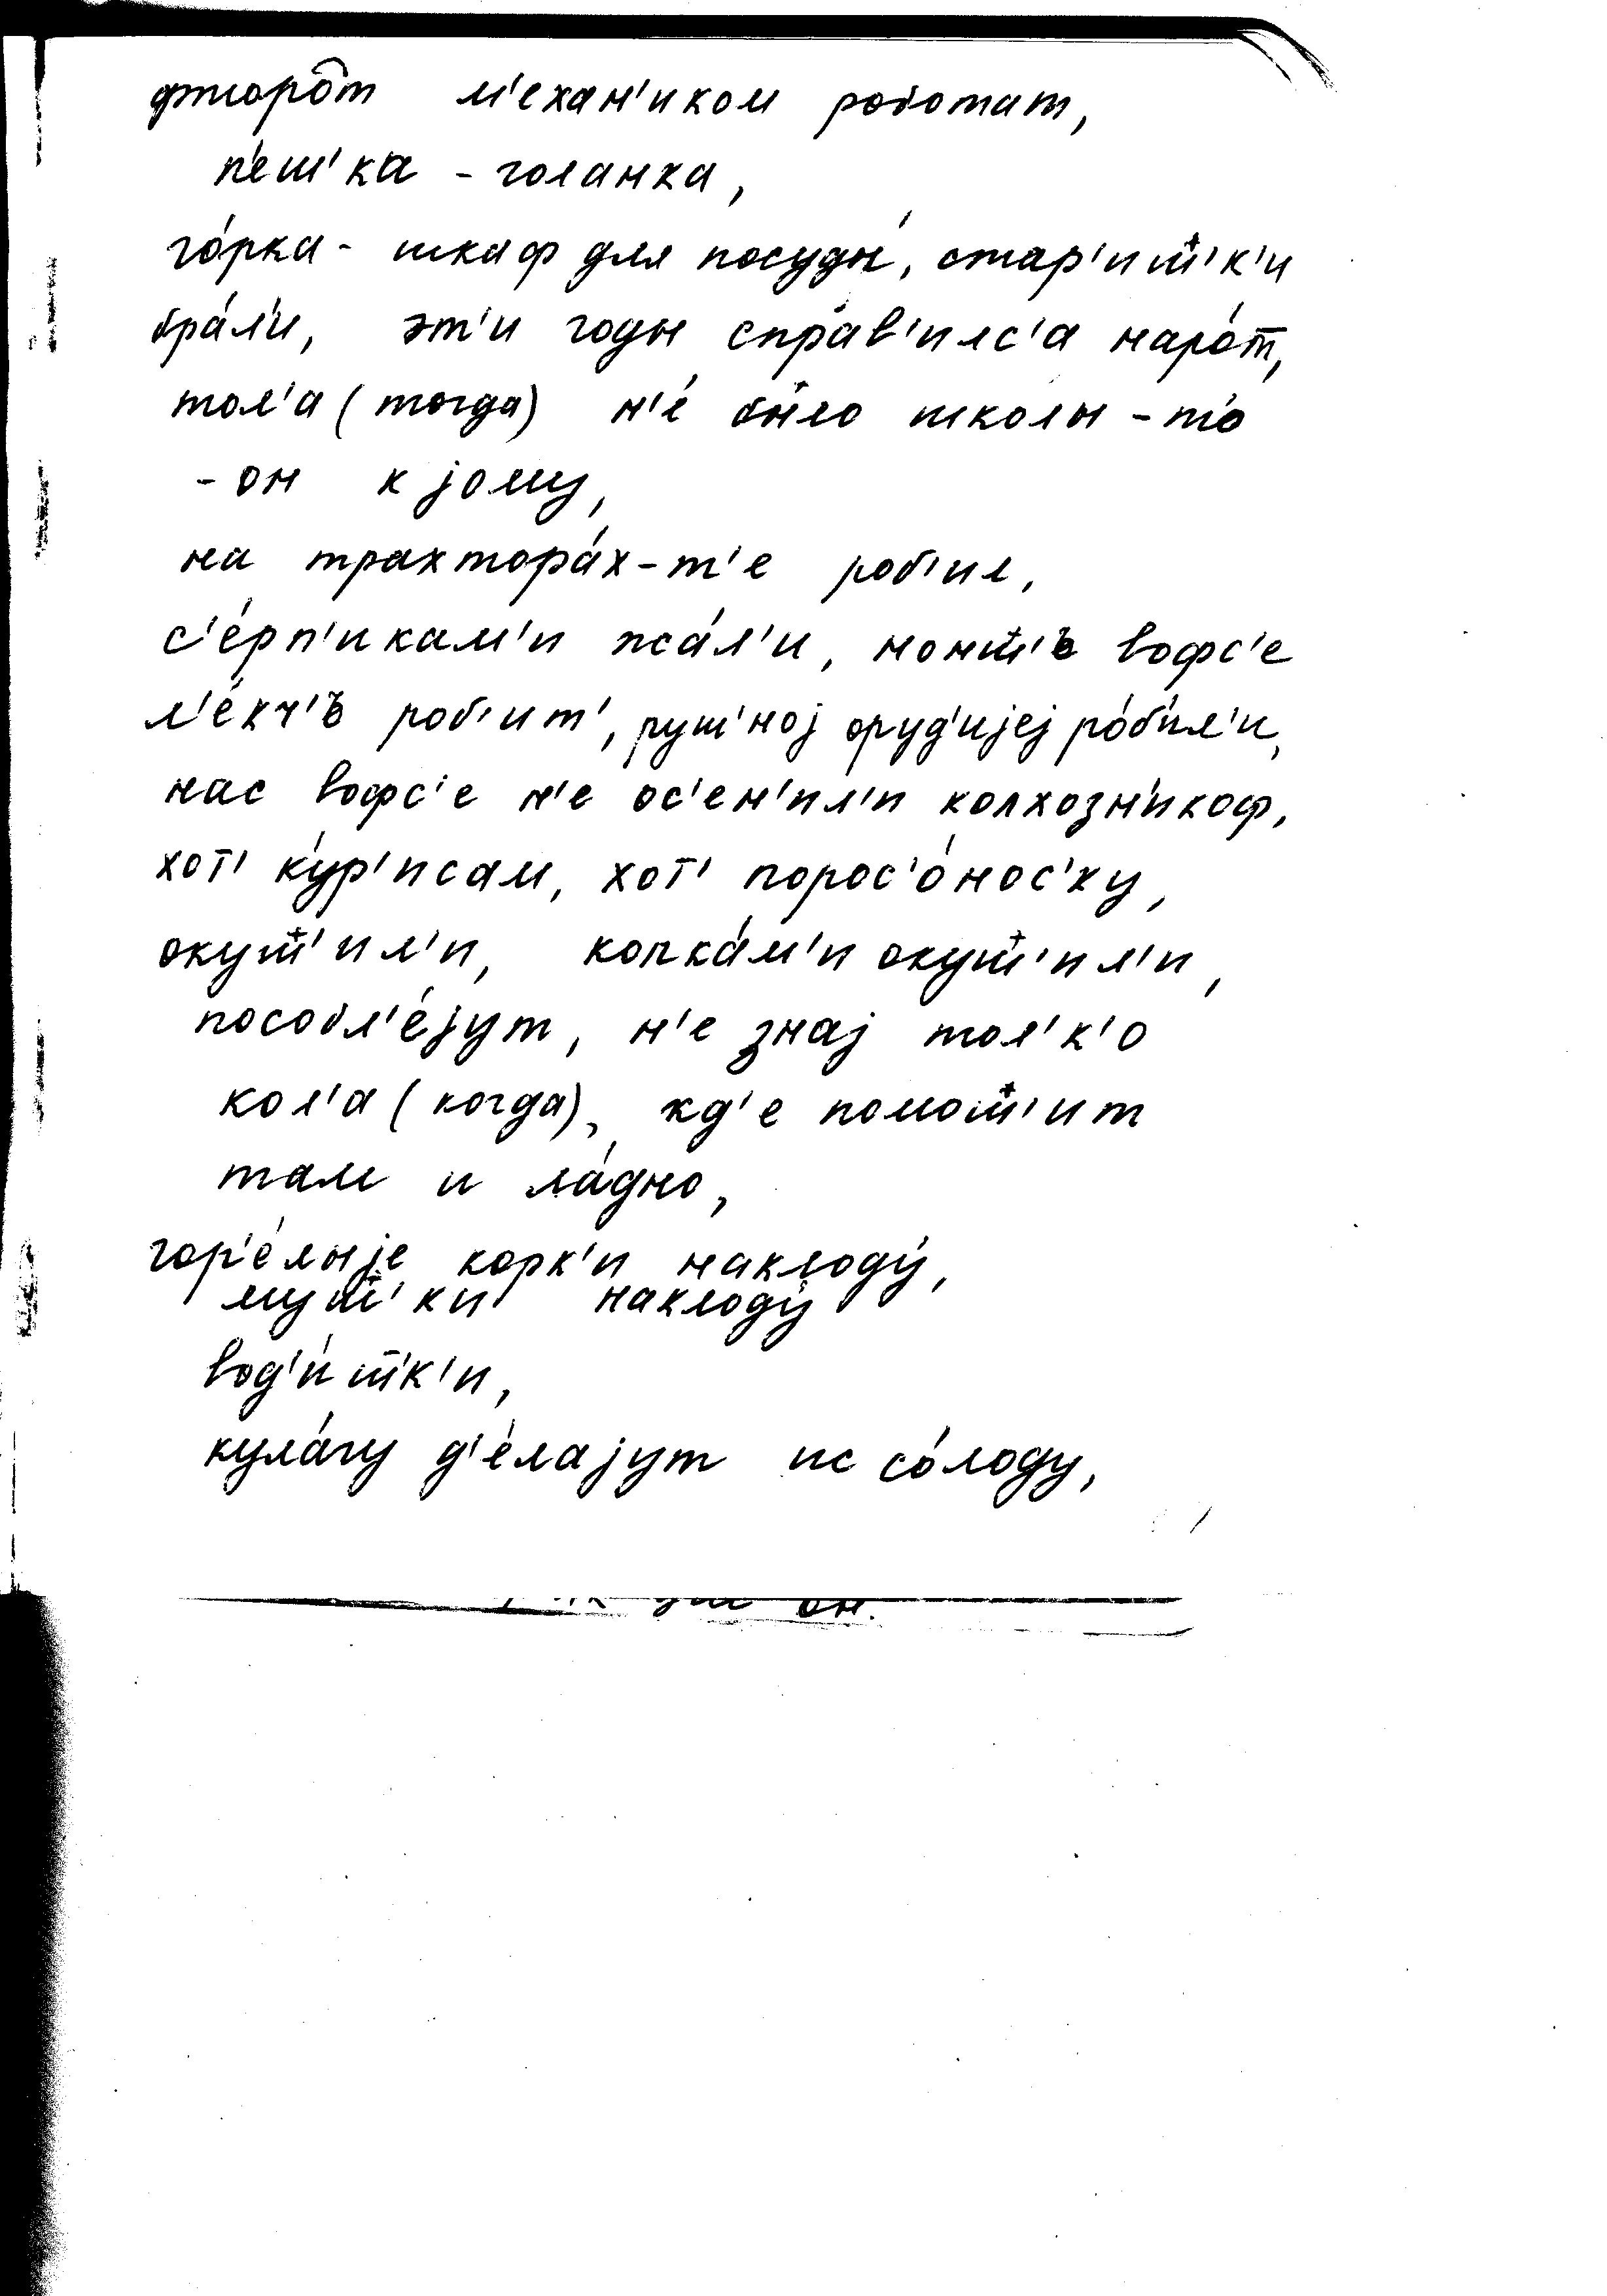 фторо̂т м'ехан'иком роботат,
п'еш'ка - голанка,
го́рка - шкаф для посуды́, стар'ит'к'и
бра́л'и, эт'и годы спра́в'илс'а наро́т,
тол'а (тогда) н'е́ было школы - то
- он к јому,
на тракторах-т'е роб'ил,
с'е́рп'икам'и жа́л'и, нонт'ъ вофс'е
л'е́кч'ъ роб'ит', руш'ној оруд'ијеј ро́б'ил'и,
нас вофс'е н'е ос'ен'ил'и колхозн'икоф,
хот' ку́р'исам, хот' порос'о́нос'ку,
окут'ил'и, копка́м'и окут'ил'и,
пособл'е́јут, н'е знај тол'к'о
кол'а (когда), кд'е помот'ит
там и ла́дно,
гор'е́лыје корк'и накладу́,
мут'ки накладу́
вод'и́т'к'и,
кула́гу д'е́лајут ис со́лоду,
он.